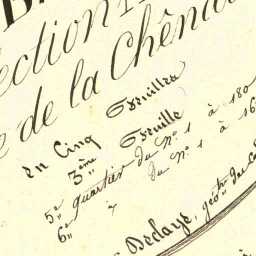 ection
e de la Chên
en Cinq feuilles
3ème feuille
5e quartier du N° 1 à 180
6e " du N° 1 à 16
Declaye, géom. du Ca